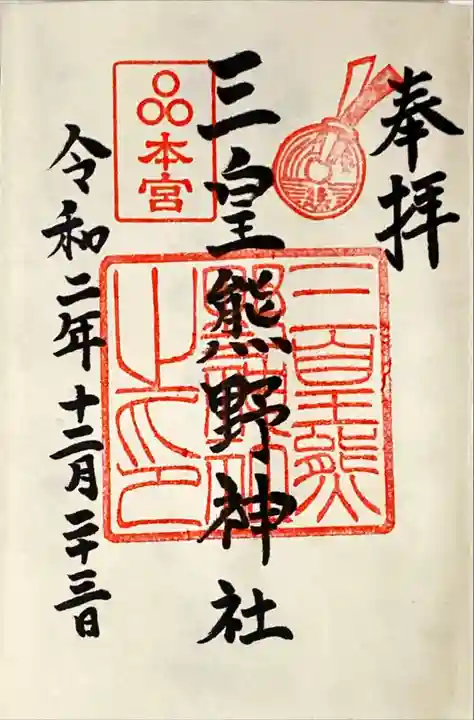 奉拝
三皇熊野神社
本宮
三皇熊
野神社
之印
令和二年十二月二十三日